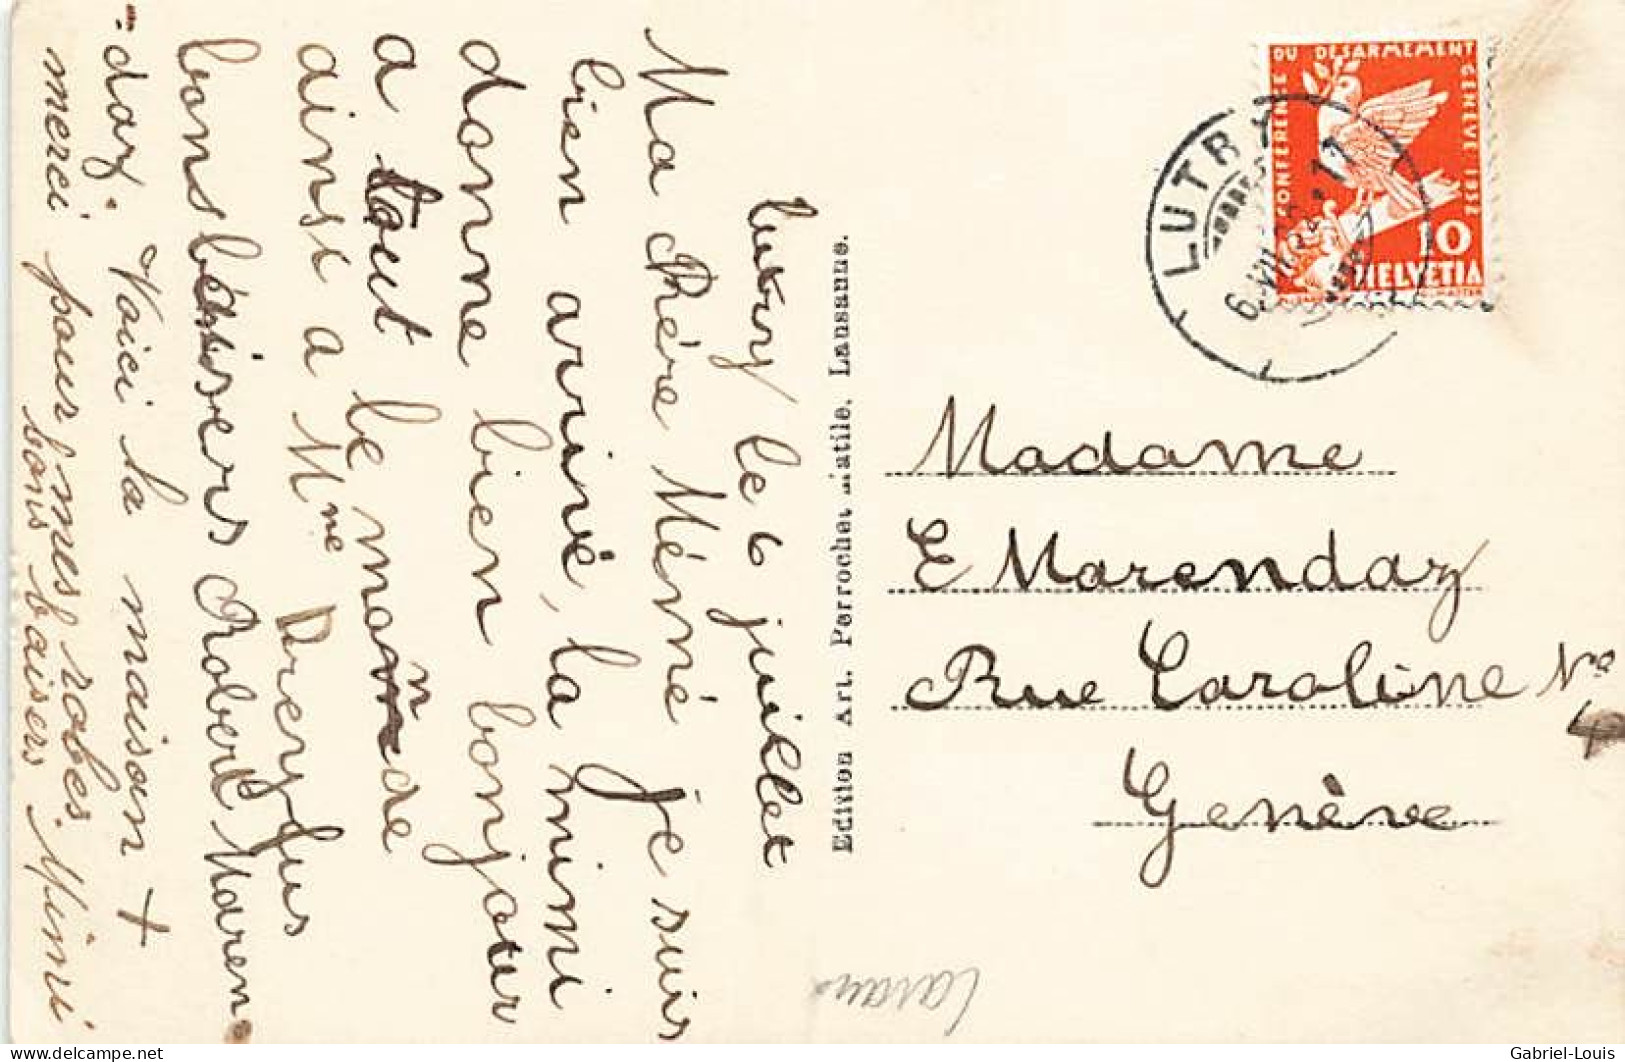 Lutry le 6 juillet
Ma chére Méné je suis
bien arivé, la mimi
donne bien bonjour
a tout le monde
ainsi a Mme Dreyfus
bons baisers Robert Maren
-daz. Voici la maison +
merci pour mes robes. Mimi
bons baisers
Edition Art. Perrochet Matile. Lausanne.
CONFERENCE DU DESARMEMENT GENEVE 1932
10
HELVETIA
LUTRY
6.VII.34.11
Madame
E Marendaz
Rue Caroline No
4
Genève
Lavaux
delcampe.net
Gabriel-Louis